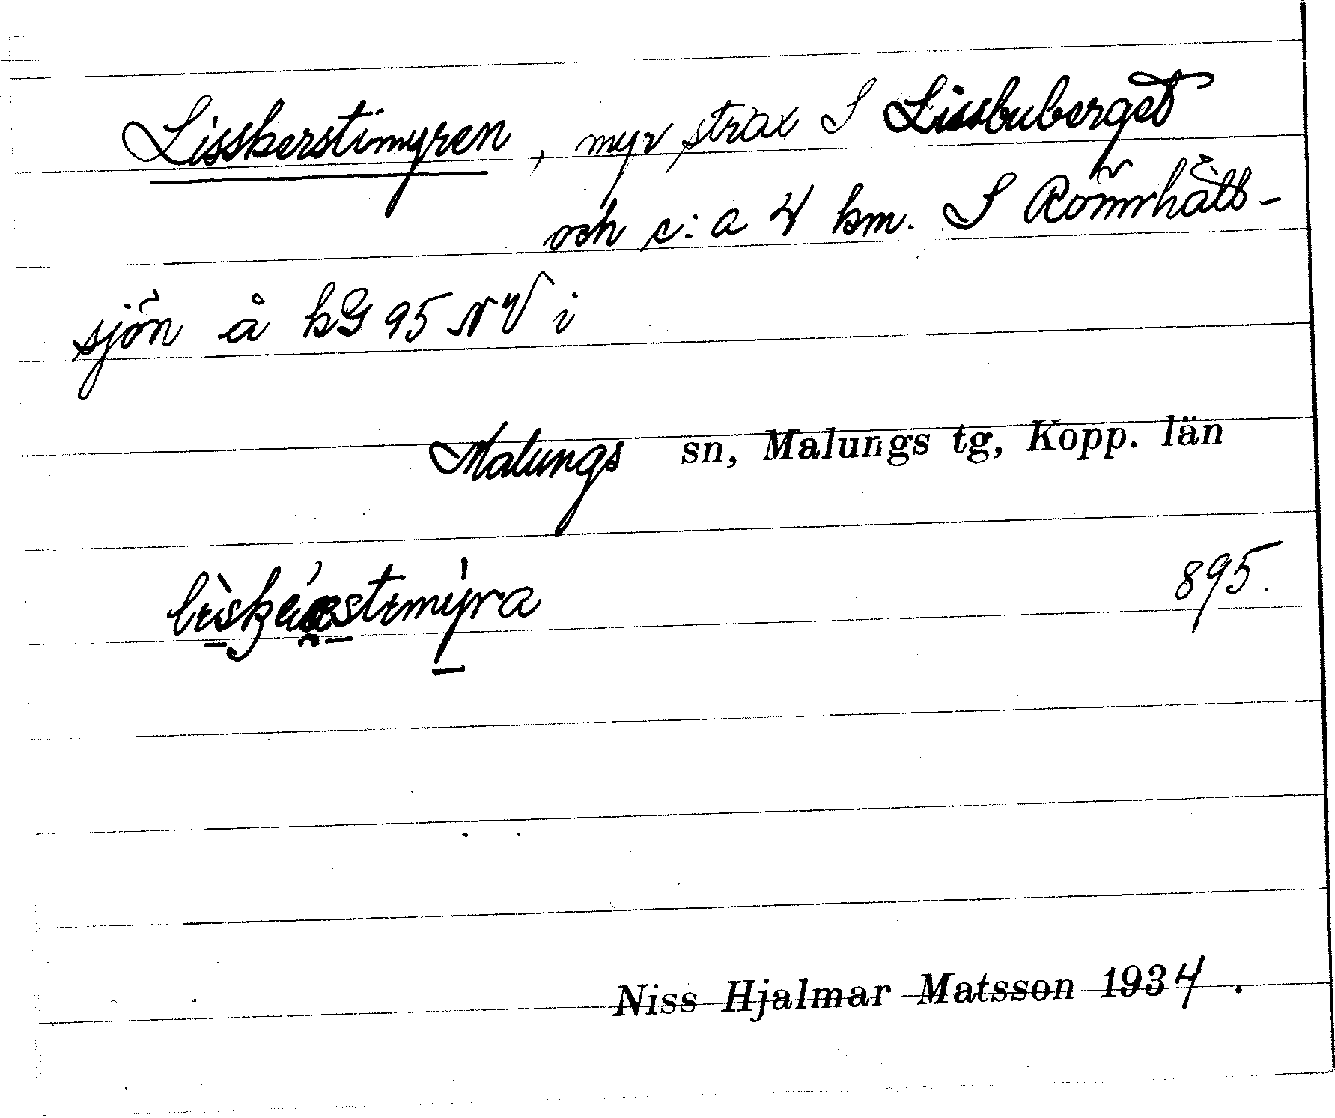 Lisskerstimyren, myr strax S Lissbuberget
och c:a 4 km. S Römrhätt-
sjön å kG 95 NV i
Malungs sn, Malungs tg, Kopp. län
895.
Niss Hjalmar Matsson 1934.